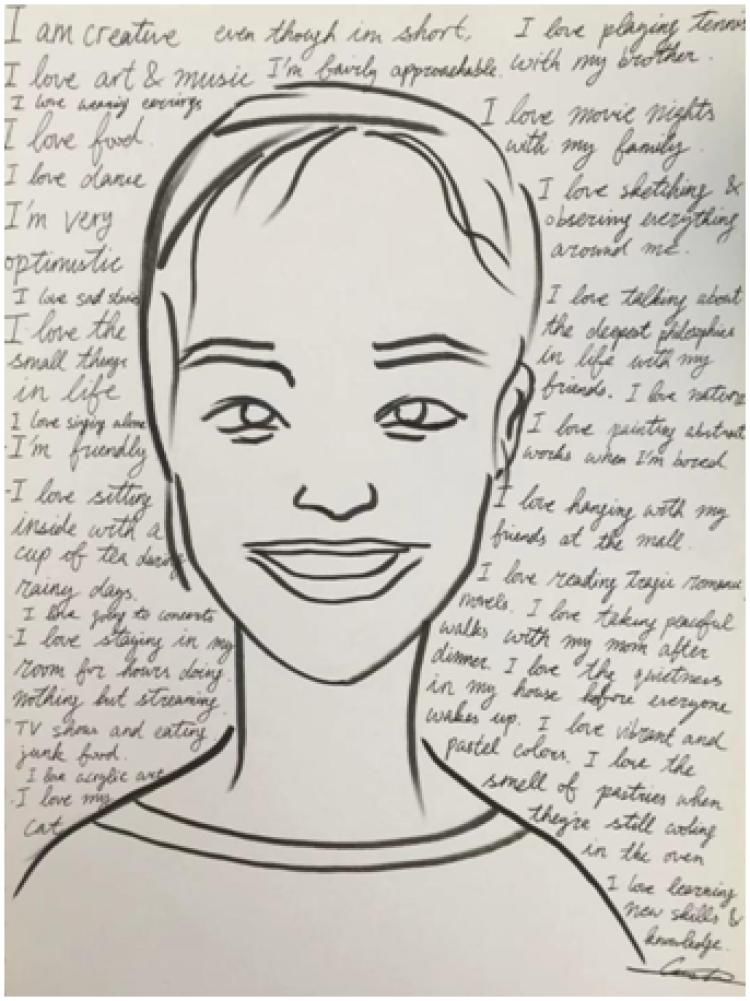 I am creative even though im short,
I love art & music I'm fairly approachable.
I love wearing earrings
I love food.
I love dance
I'm very
optimistic
I love sad stories
I love the
small things
in life
I love singing alone
I'm friendly
-I love sitting
inside with a
cup of tea during
rainy days.
I love going to concerts
-I love staying in my
room for hours doing
nothing but streaming
TV shows and eating
junk food.
I love acrylic art
-I love my
cat
I love playing tennis
with my brother.
I love movie nights
with my family.
I love sketching &
observing everything
around me.
I love talking about
the deepest philosophies
in life with my
friends. I love nature
I love painting abstract
works when I'm bored
I love hanging with my
friends at the mall.
I love reading tragic romance
novels. I love taking peaceful
walks with my mom after
dinner. I love the quietness
in my house before everyone
wakes up. I love vibrant and
pastel colors. I love the
smell of pastries when
they're still cooling
in the oven
I love learning
new skills &
knowledge.